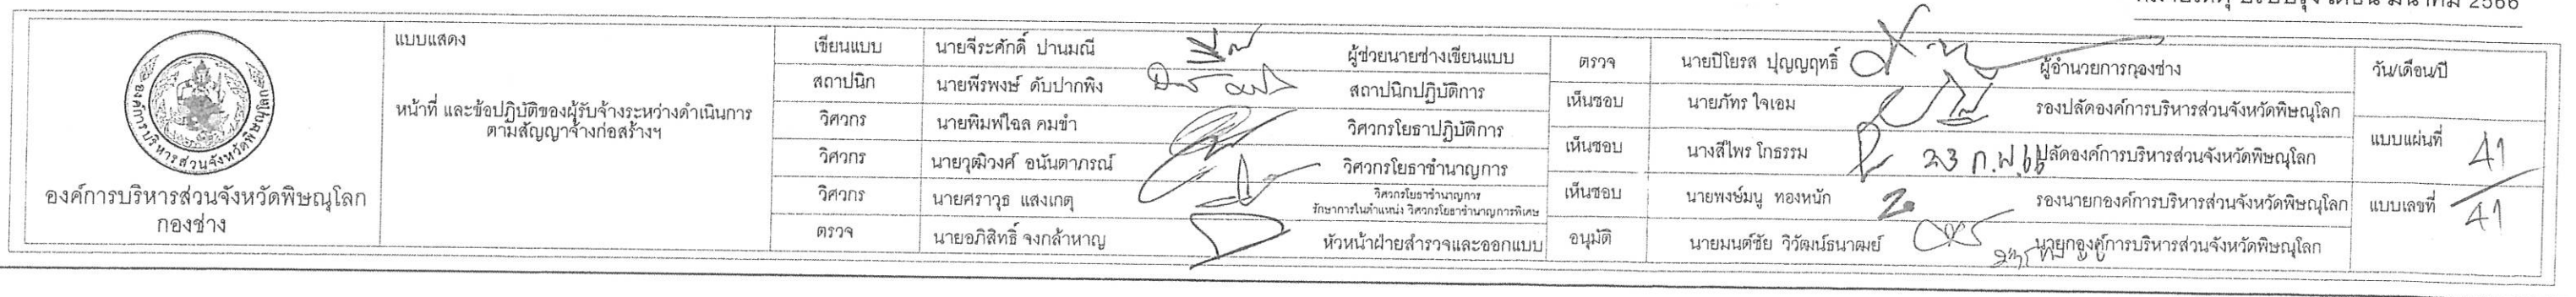 ปรับปรุง เดือน มีนาคม 2566
แบบแสดง
หน้าที่ และข้อปฏิบัติของผู้รับจ้างระหว่างดำเนินการ
ตามสัญญาจ้างก่อสร้างฯ
องค์การบริหารส่วนจังหวัดพิษณุโลก
องค์การบริหารส่วนจังหวัดพิษณุโลก
กองช่าง
เขียนแบบ นายจีระศักดิ์ ปานมณี ผู้ช่วยนายช่างเขียนแบบ
สถาปนิก นายพีรพงษ์ ดับปากพิง สถาปนิกปฏิบัติการ
วิศวกร นายพิมพ์ใจล คมขำ วิศวกรโยธาปฏิบัติการ
วิศวกร นายวุฒิวงศ์ อนันตาภรณ์ วิศวกรโยธาชำนาญการ
วิศวกร นายศราวุธ แสงเกตุ วิศวกรโยธาชำนาญการ
รักษาการในตำแหน่ง วิศวกรโยธาชำนาญการพิเศษ
ตรวจ นายอภิสิทธิ์ จงกล้าหาญ หัวหน้าฝ่ายสำรวจและออกแบบ
ตรวจ นายปิโยรส ปุญญฤทธิ์ ผู้อำนวยการกองช่าง
เห็นชอบ นายภัทร ใจเอม รองปลัดองค์การบริหารส่วนจังหวัดพิษณุโลก
เห็นชอบ นางสีไพร โกธรรม 23 ก.พ. 66 ปลัดองค์การบริหารส่วนจังหวัดพิษณุโลก
เห็นชอบ นายพงษ์มนู ทองหนัก รองนายกองค์การบริหารส่วนจังหวัดพิษณุโลก
อนุมัติ นายมนต์ชัย วิวัฒน์ธนาฒย์ นายกองค์การบริหารส่วนจังหวัดพิษณุโลก
วัน/เดือน/ปี
แบบแผ่นที่ 41
แบบเลขที่ 41